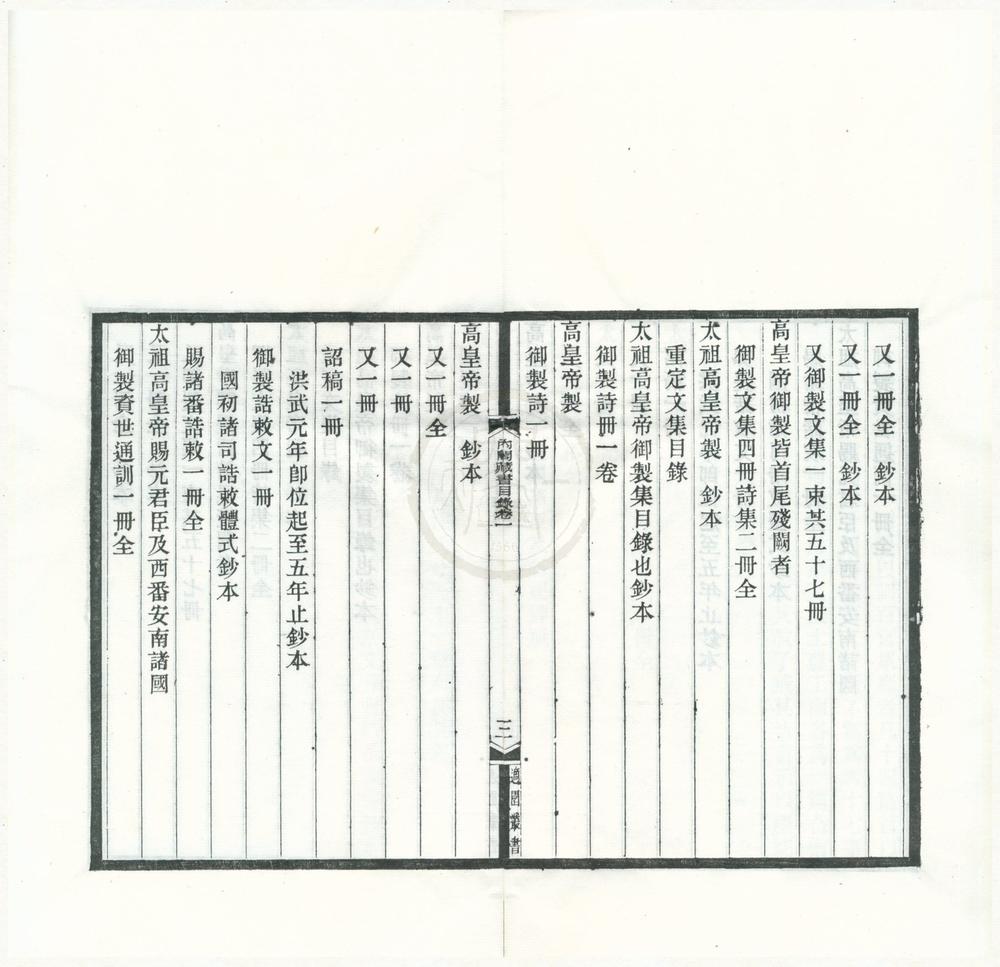 又一冊全 鈔本
又一冊全 鈔本
又御製文集一束共五十七冊
高皇帝御製皆首尾殘闕者
御製文集四冊詩集二冊全
太祖高皇帝製 鈔本
重定文集目錄
太祖高皇帝御製集目錄也鈔本
御製詩冊一卷
高皇帝製
御製詩一冊
內閣藏書目錄卷一
三
適園叢書
高皇帝製 鈔本
又一冊全
又一冊
又一冊
詔稿一冊
洪武元年卽位起至五年止鈔本
御製誥敕文一冊
國初諸司誥敕體式鈔本
賜諸番誥敕一冊全
太祖高皇帝賜元君臣及西番安南諸國
御製資世通訓一冊全